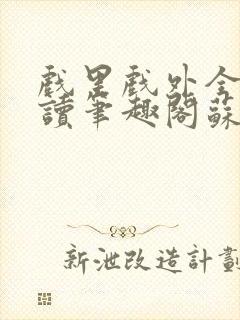 戲里戲外全
讀筆趣閣蘇
新泄改造計劃